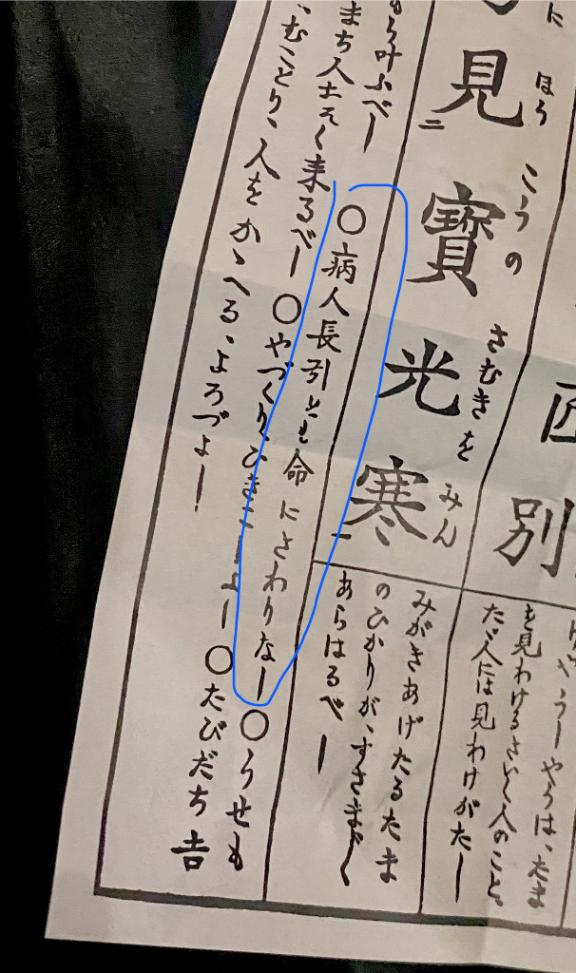 別
やうは、たま
を見わけるさいく人のこと。
たゞ人には見わけがたし
に ほうこうの さむきを みん
見二寶光寒一
みがきあげたるたま
のひかりが、すさまじく
あらはるべし
叶ふべし ○病人長引とも命にさわりなし ○うせも
まち人おそく来るべし ○やづくり、ひきこしよし ○たびだち吉
、むことり、人をかゝへる、よろづよし